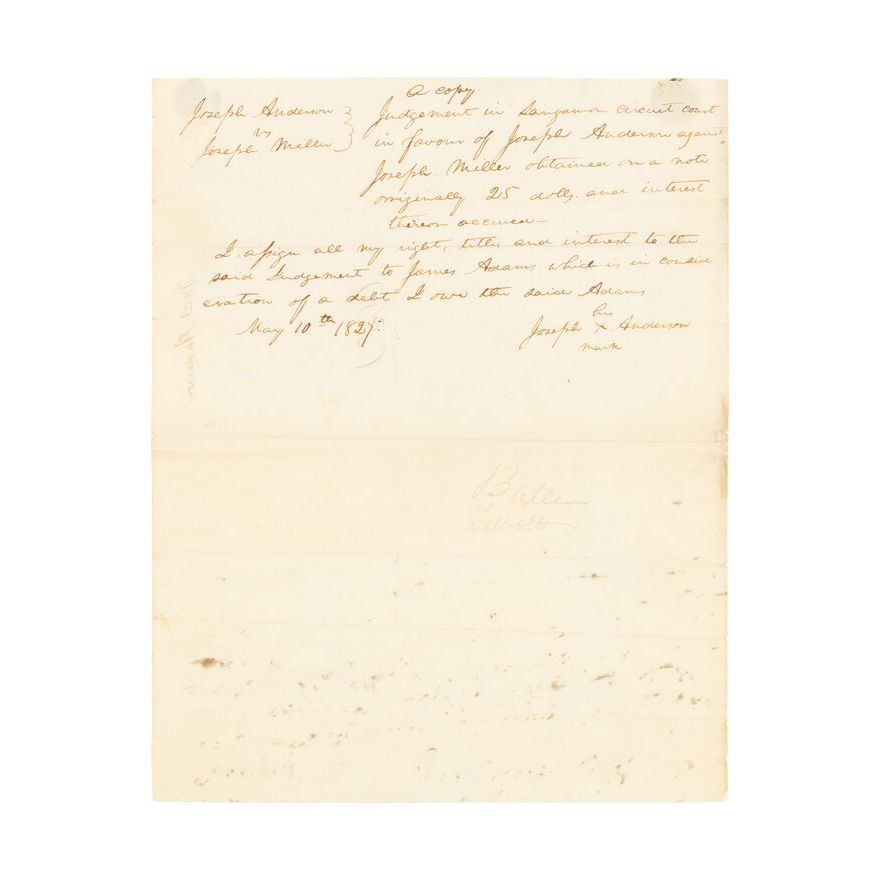 A copy
Joseph Anderson
vs
Joseph Miller
Judgement in Sangamon circuit court
in favour of Joseph Anderson against
Joseph Miller obtained on a note
originally 25 dolls. and interest
thereon accrued—
I assign all my right, title and interest to the
said Judgement to James Adams which is in consid
eration of a debt I owe the said Adams
May 10th 1827.
his
Joseph X Anderson
mark